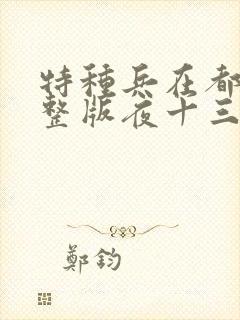 特種兵在都
整版夜十三
鄭鈞